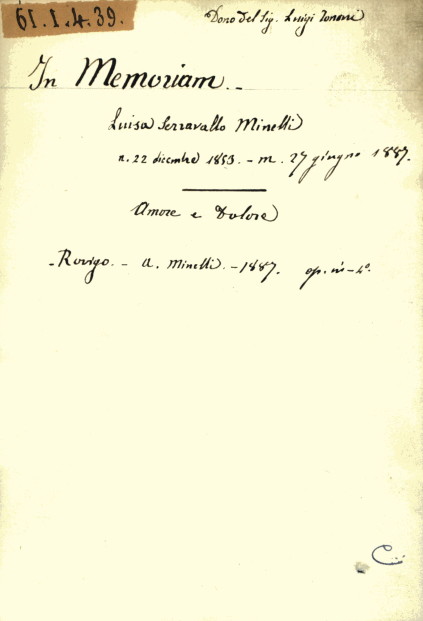 61.1.4.39.
Dono del Sig. Luigi
In Memoriam. -
Luisa Serravallo Minelli
n. 22 dicembre 1853. - m. 27 giugno 1887.
Amore e Dolore
- Rovigo. - A. Minelli. - 1887. op. in - 4°.
C